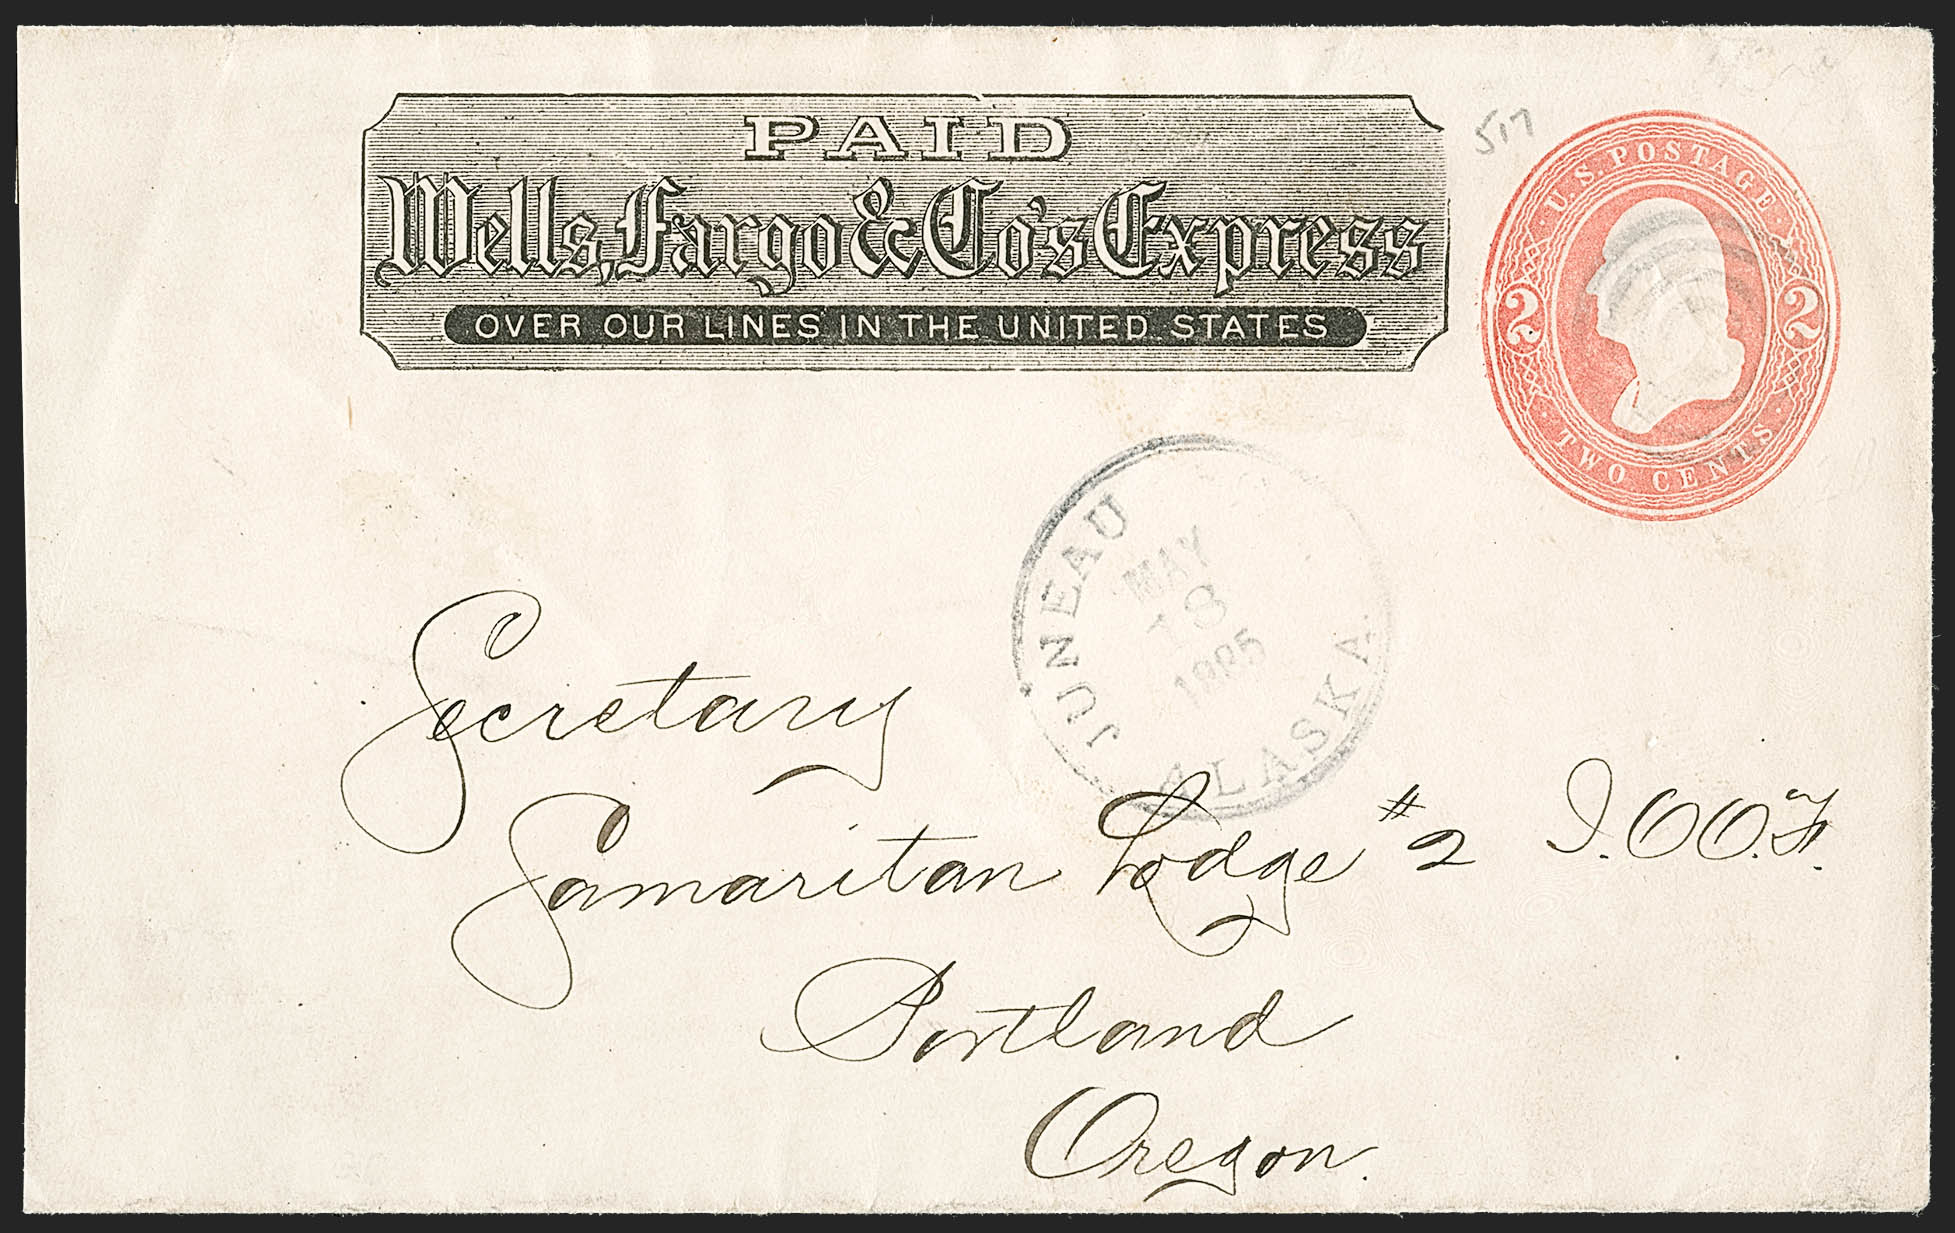 PAID
Wells, Fargo & Co's Express
OVER OUR LINES IN THE UNITED STATES
517
U.S. POSTAGE
2 2
TWO CENTS
JUNEAU
MAY
18
1885
ALASKA
Secretary
Samaritan Lodge #2 I.O.O.F.
Portland
Oregon.